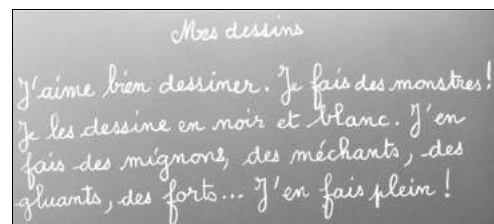 Mes dessins
J'aime bien dessiner. Je fais des monstres !
Je les dessine en noir et blanc. J'en
fais des mignons, des méchants, des
gluants, des forts... J'en fais plein !